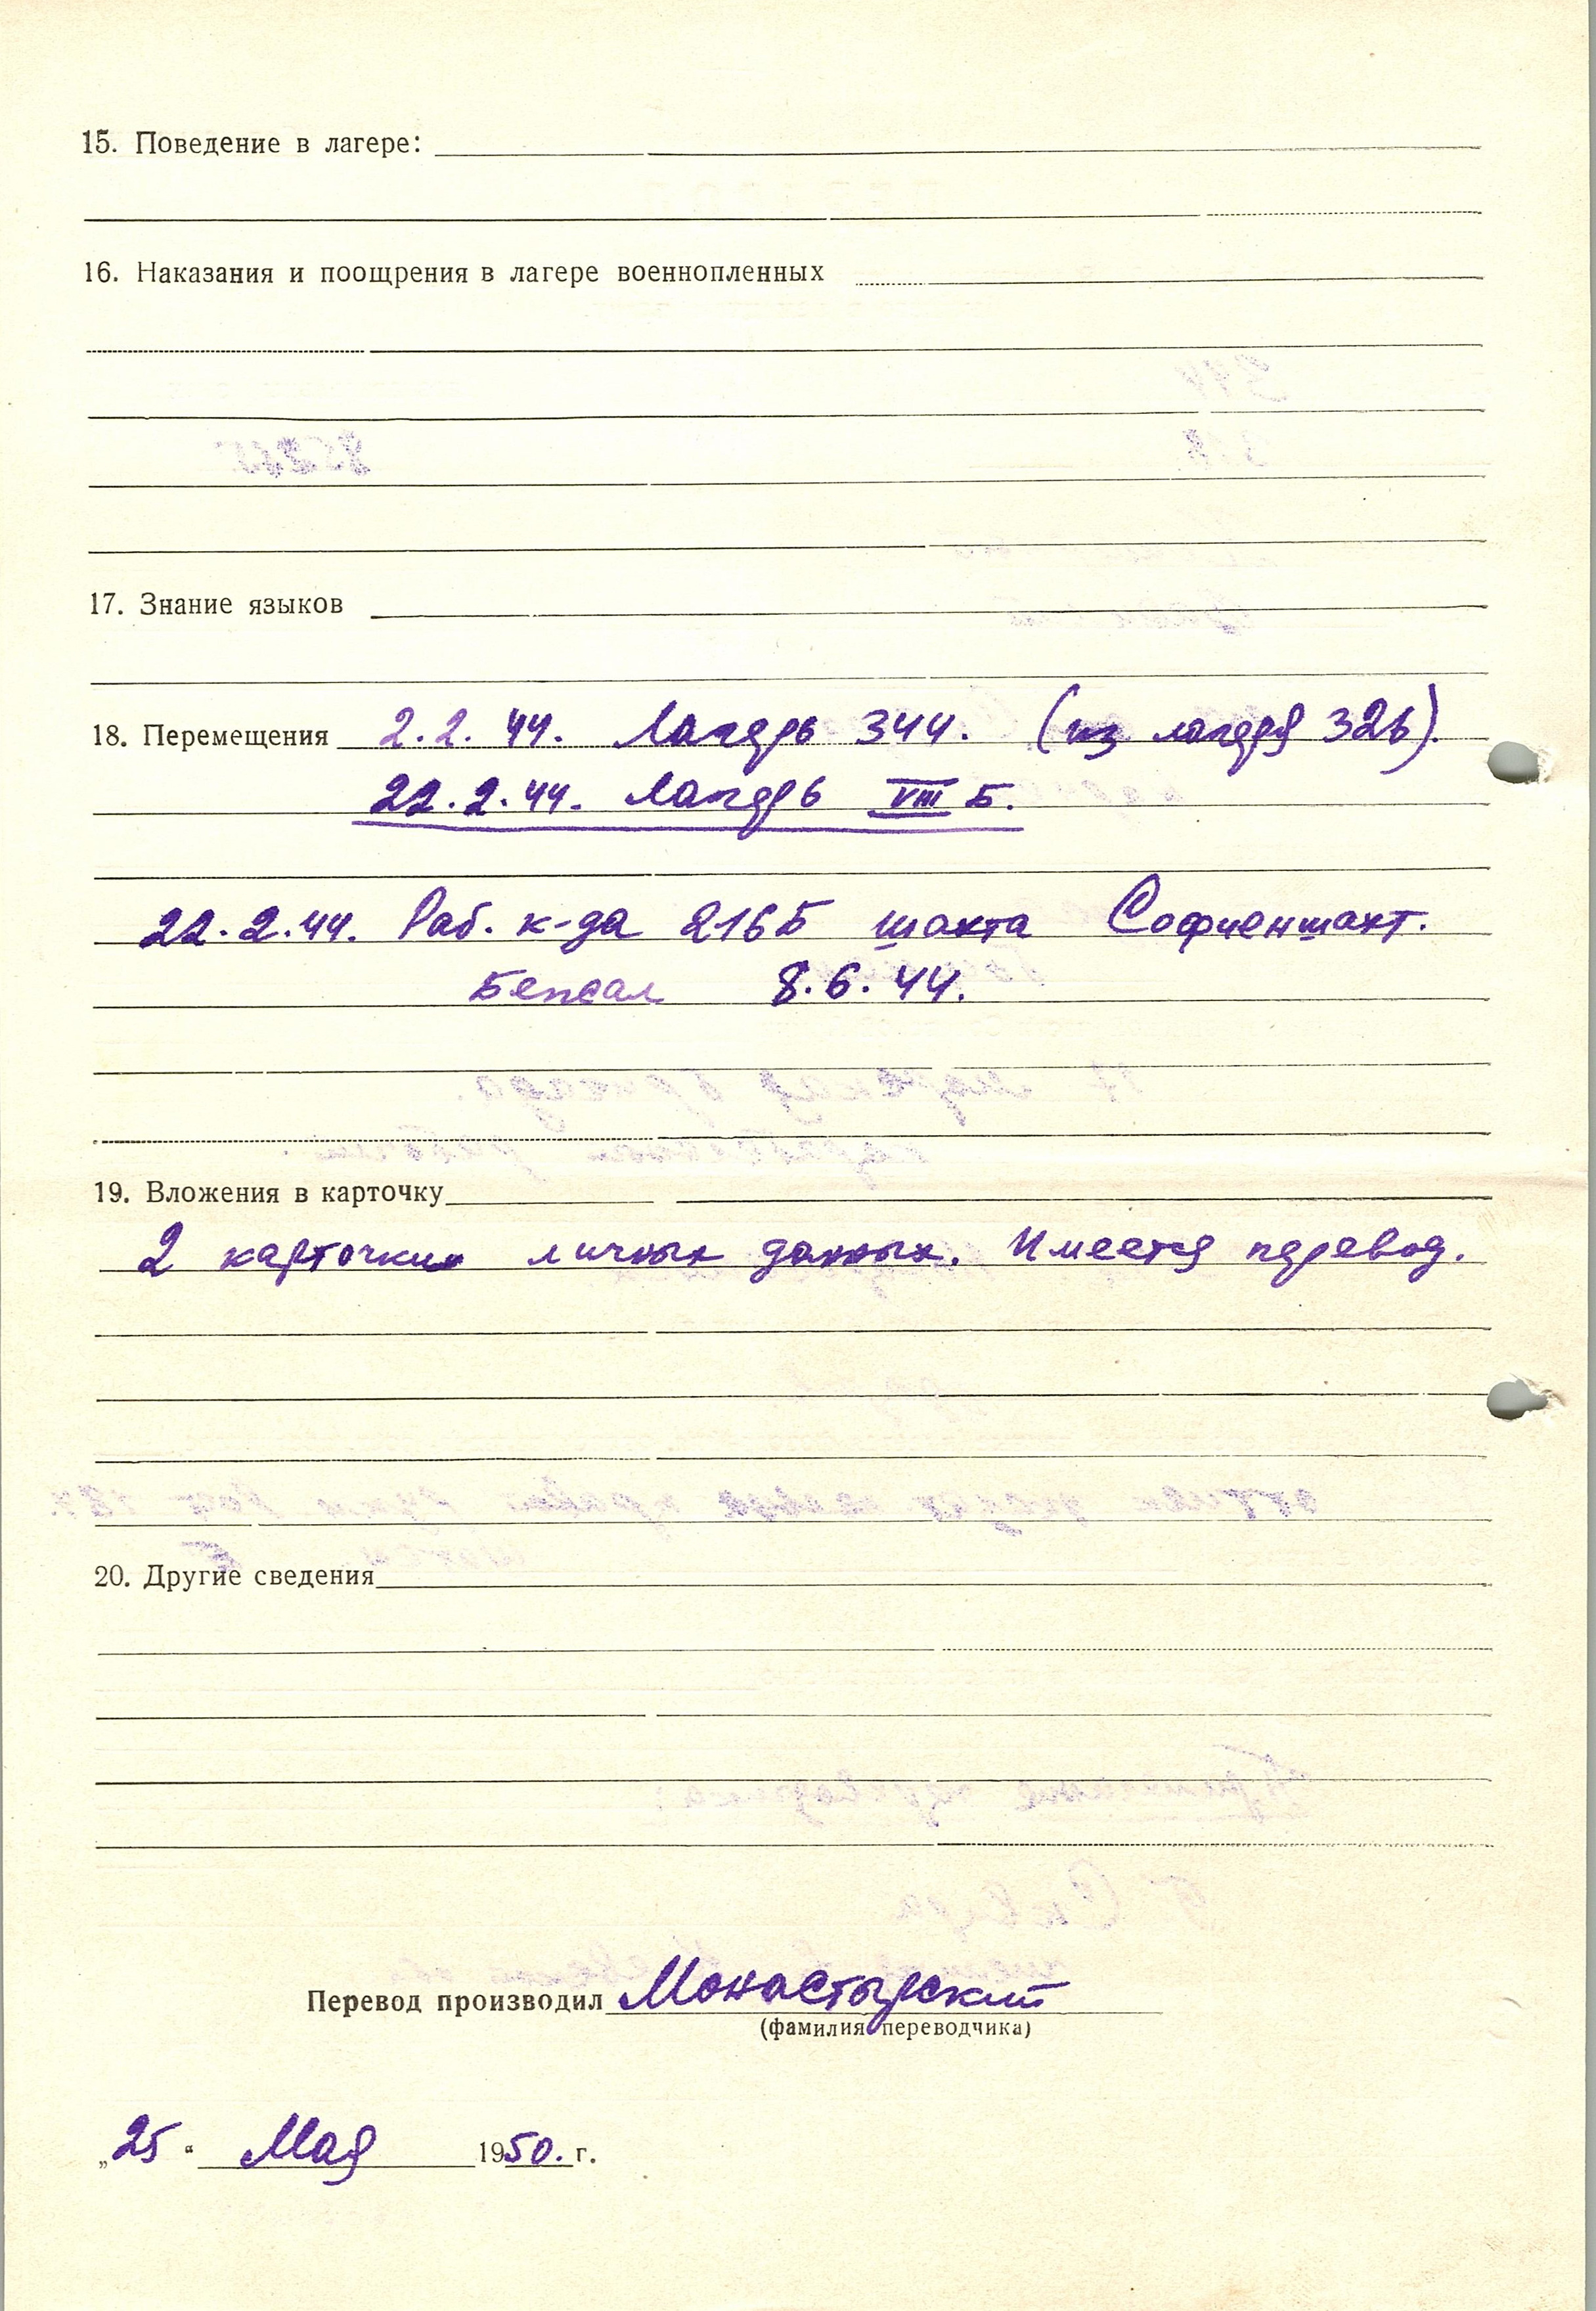 15. Поведение в лагере:
16. Наказания и поощрения в лагере военнопленных
17. Знание языков
18. Перемещения 2.2.44. Лагерь 344. (из лагеря 326).
22.2.44. Лагерь VIII Б.
22.2.44. Раб. к-да 216Б шахта Софиеншахт.
8.6.44.
19. Вложения в карточку
2 карточки личных данных. Имеется перевод.
20. Другие сведения
Перевод производил Монастырский
(фамилия переводчика)
„25“ Мая 1950. г.